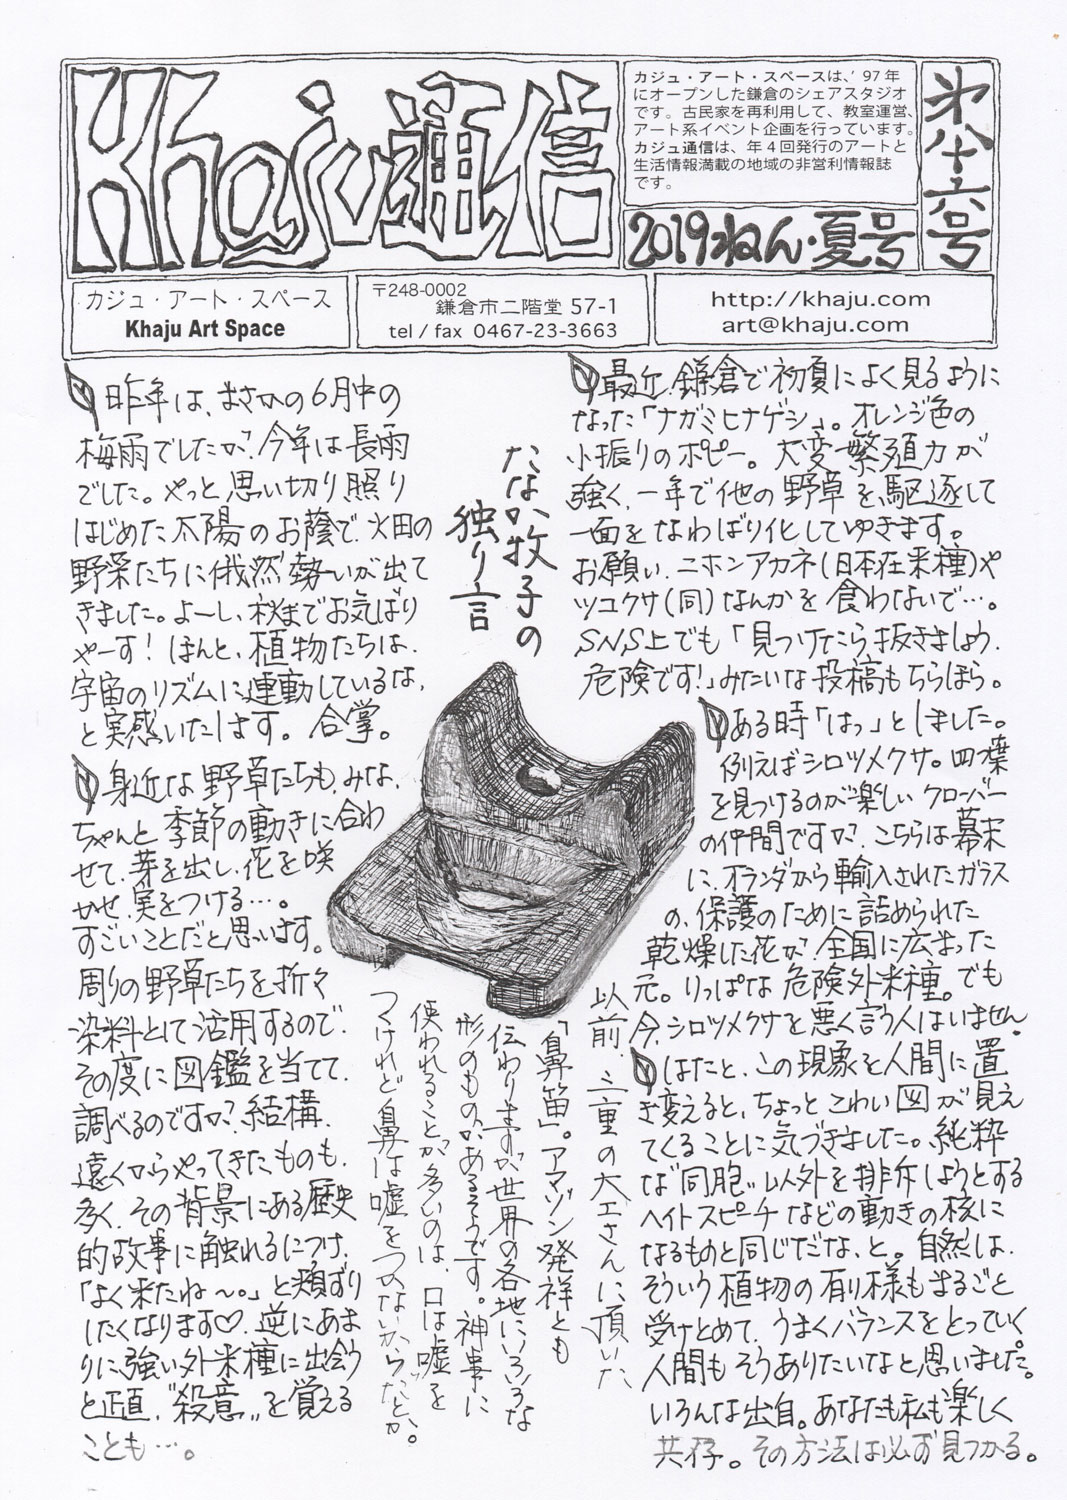 Khaju通信
カジュ・アート・スペースは、'97年
にオープンした鎌倉のシェアスタジオ
です。古民家を再利用して、教室運営、
アート系イベント企画を行っています。
カジュ通信は、年4回発行のアートと
生活情報満載の地域の非営利情報誌
です。
2019ねん・夏号
第八十六号
カジュ・アート・スペース
Khaju Art Space
〒248-0002
鎌倉市二階堂 57-1
tel / fax 0467-23-3663
http://khaju.com
art@khaju.com
たなか牧子の
独り言
昨年は、まさかの6月中の
梅雨でしたが、今年は長雨
でした。やっと思い切り照り
はじめた太陽のお蔭で、畑の
野菜たちに俄然勢いが出て
きました。よーし、秋までお気ばり
やーす!ほんと、植物たちは、
宇宙のリズムに連動しているな、
と実感いたします。合掌。
身近な野草たちも、みな、
ちゃんと季節の動きに合わ
せて、芽を出し、花を咲
かせ、実をつける…。
すごいことだと思います。
周りの野草たちを折々
染料として活用するので、
その度に図鑑を当てて、
調べるのですが、結構、
遠くからやってきたものも、
多く、その背景にある歴史
的故事に触れるにつけ、
「よく来たね〜。」と頬ずり
したくなります♡。逆にあま
りに強い外来種に出会う
と正直、“殺意”を覚える
ことも…。
最近、鎌倉で初夏によく見るように
なった「ナガミヒナゲシ」。オレンジ色の
小振りのポピー。大変繁殖力が
強く、一年で他の野草を駆逐して
一面をなわばり化してゆきます。
お願い、ニホンアカネ(日本在来種)や
ツユクサ(同)なんかを食わないで…。
SNS上でも「見つけたら抜きましょう、
危険です!」みたいな投稿もちらほら。
ある時「はっ」としました。
例えばシロツメクサ。四つ葉
を見つけるのが楽しいクローバー
の仲間ですが、こちらは幕末
に、オランダから輸入されたガラス
の、保護のために詰められた
乾燥した花が、全国に広まった
元。りっぱな危険外来種。でも
今、シロツメクサを悪く言う人はいません。
はたと、この現象を人間に置
き変えると、ちょっとこわい図が見え
てくることに気づきました。純粋
な“同胞”以外を排斥しようとする
ヘイトスピーチなどの動きの核に
なるものと同じだな、と。自然は、
そういう植物の有り様もまるごと
受けとめて、うまくバランスをとっていく。
人間もそうありたいなと思いました。
いろんな出自。あなたも私も楽しく
共存。その方法は必ず見つかる。
以前、三重の大工さんに頂いた
「鼻笛」。アマゾン発祥とも
伝わりますが世界の各地にいろいろな
形のものがあるそうです。神事に
使われることが多いのは、口は嘘を
つけれど鼻は嘘をつかないからだとか。